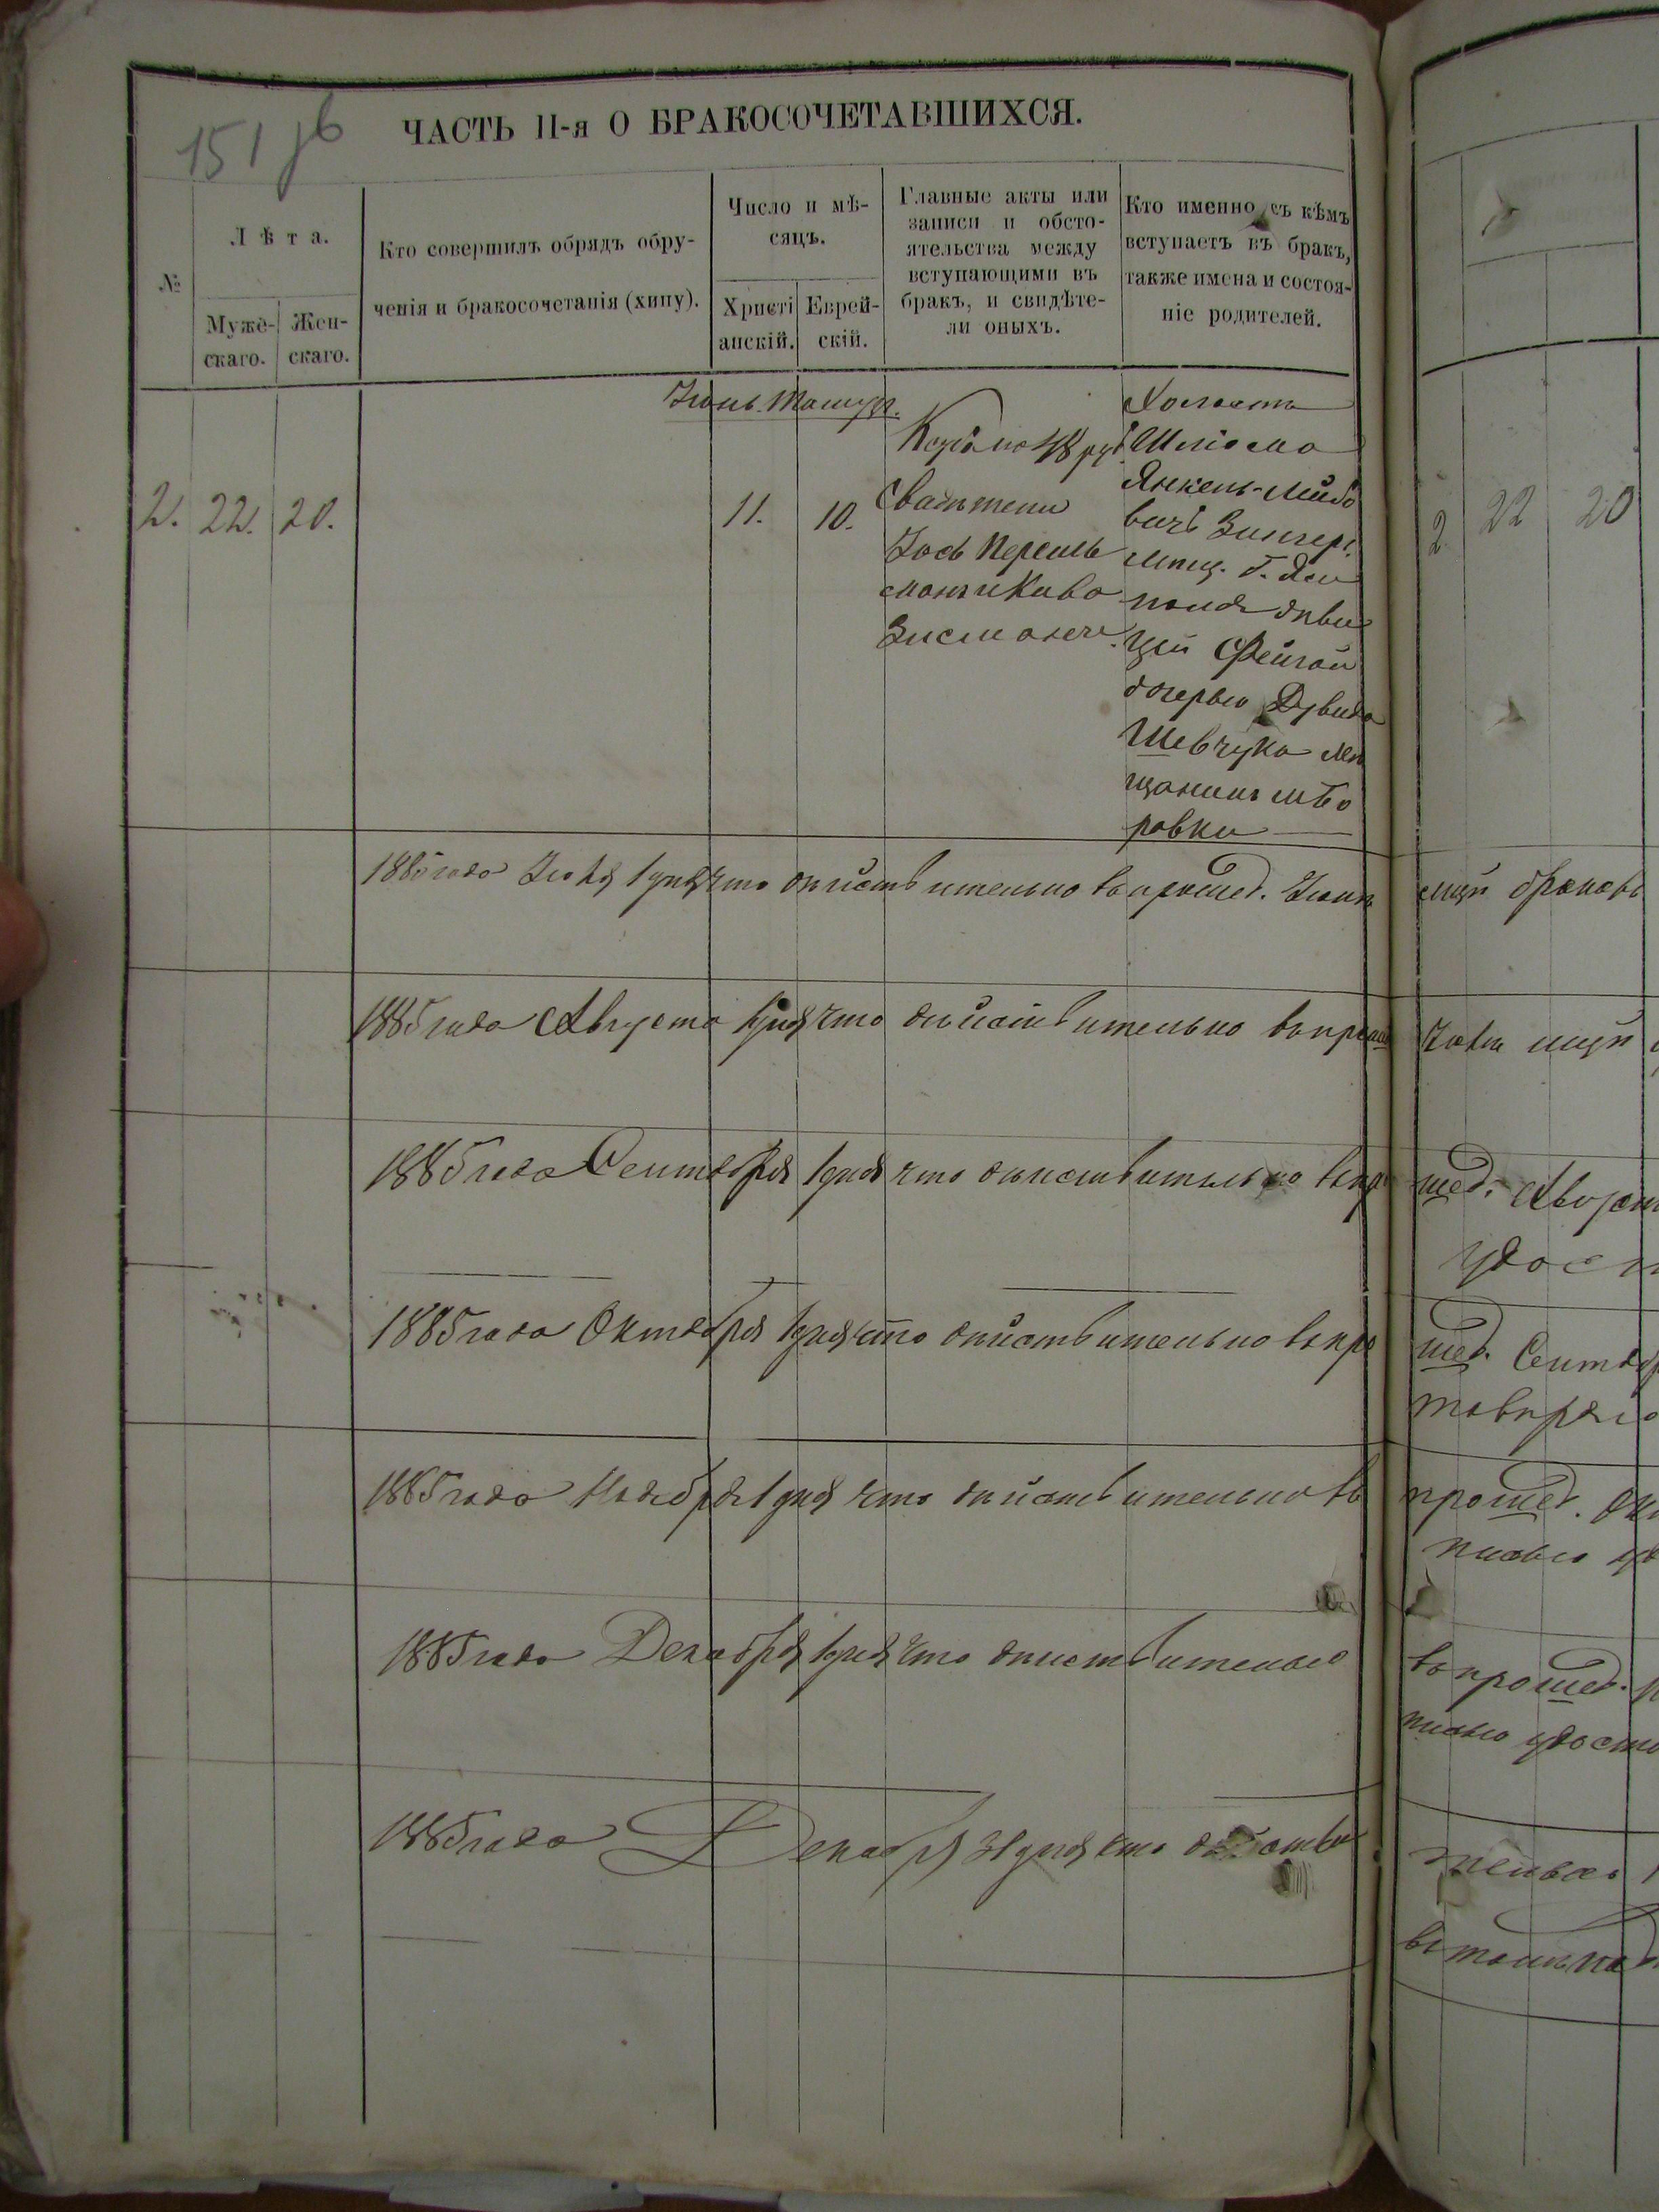 151 об
ЧАСТЬ II-я О БРАКОСОЧЕТАВШИХСЯ.
№
Лѣта.
Муже-
скаго.
Жен-
скаго.
Кто совершилъ обрядъ обру-
ченія и бракосочетанія (хипу).
Число и мѣ-
сяцъ.
Христі
анскій.
Еврей-
скій.
Главные акты или
записи и обсто-
ятельства между
вступающими въ
бракъ, и свидѣте-
ли оныхъ.
Кто именно съ кѣмъ
вступаетъ въ бракъ,
также имена и состоя-
ніе родителей.
Іюнь. Тамузъ.
2. 22. 20.
11. 10.
48 руб.
Свидѣтели
Іось Перель
Холостъ
Шліома
Янкель-Лейбо
вичъ Зингеръ
мѣщ. г. Ям
поля дѣви
цей Фейгой
дочерью Дувида
Шевчука мѣ
щанинъ м Бо
ровки
1885 года Іюля 1 дня что дѣйствительно въ прошед. Іюнѣ
1885 года Августа 1 дня что дѣйствительно въ прошед
1885 года Сентября 1 дня что дѣйствительно въ про
1885 года Октября 1 дня что дѣйствительно въ про
1885 года Ноября 1 дня что дѣйствительно въ
1885 года Декабря 1 дня что дѣйствительно
1885 года Декабря 31 дня что дѣйстви
2 22 20
мцѣ браковъ
шед.
шед. Сентябр
прошед.
въ прошед.
тельно